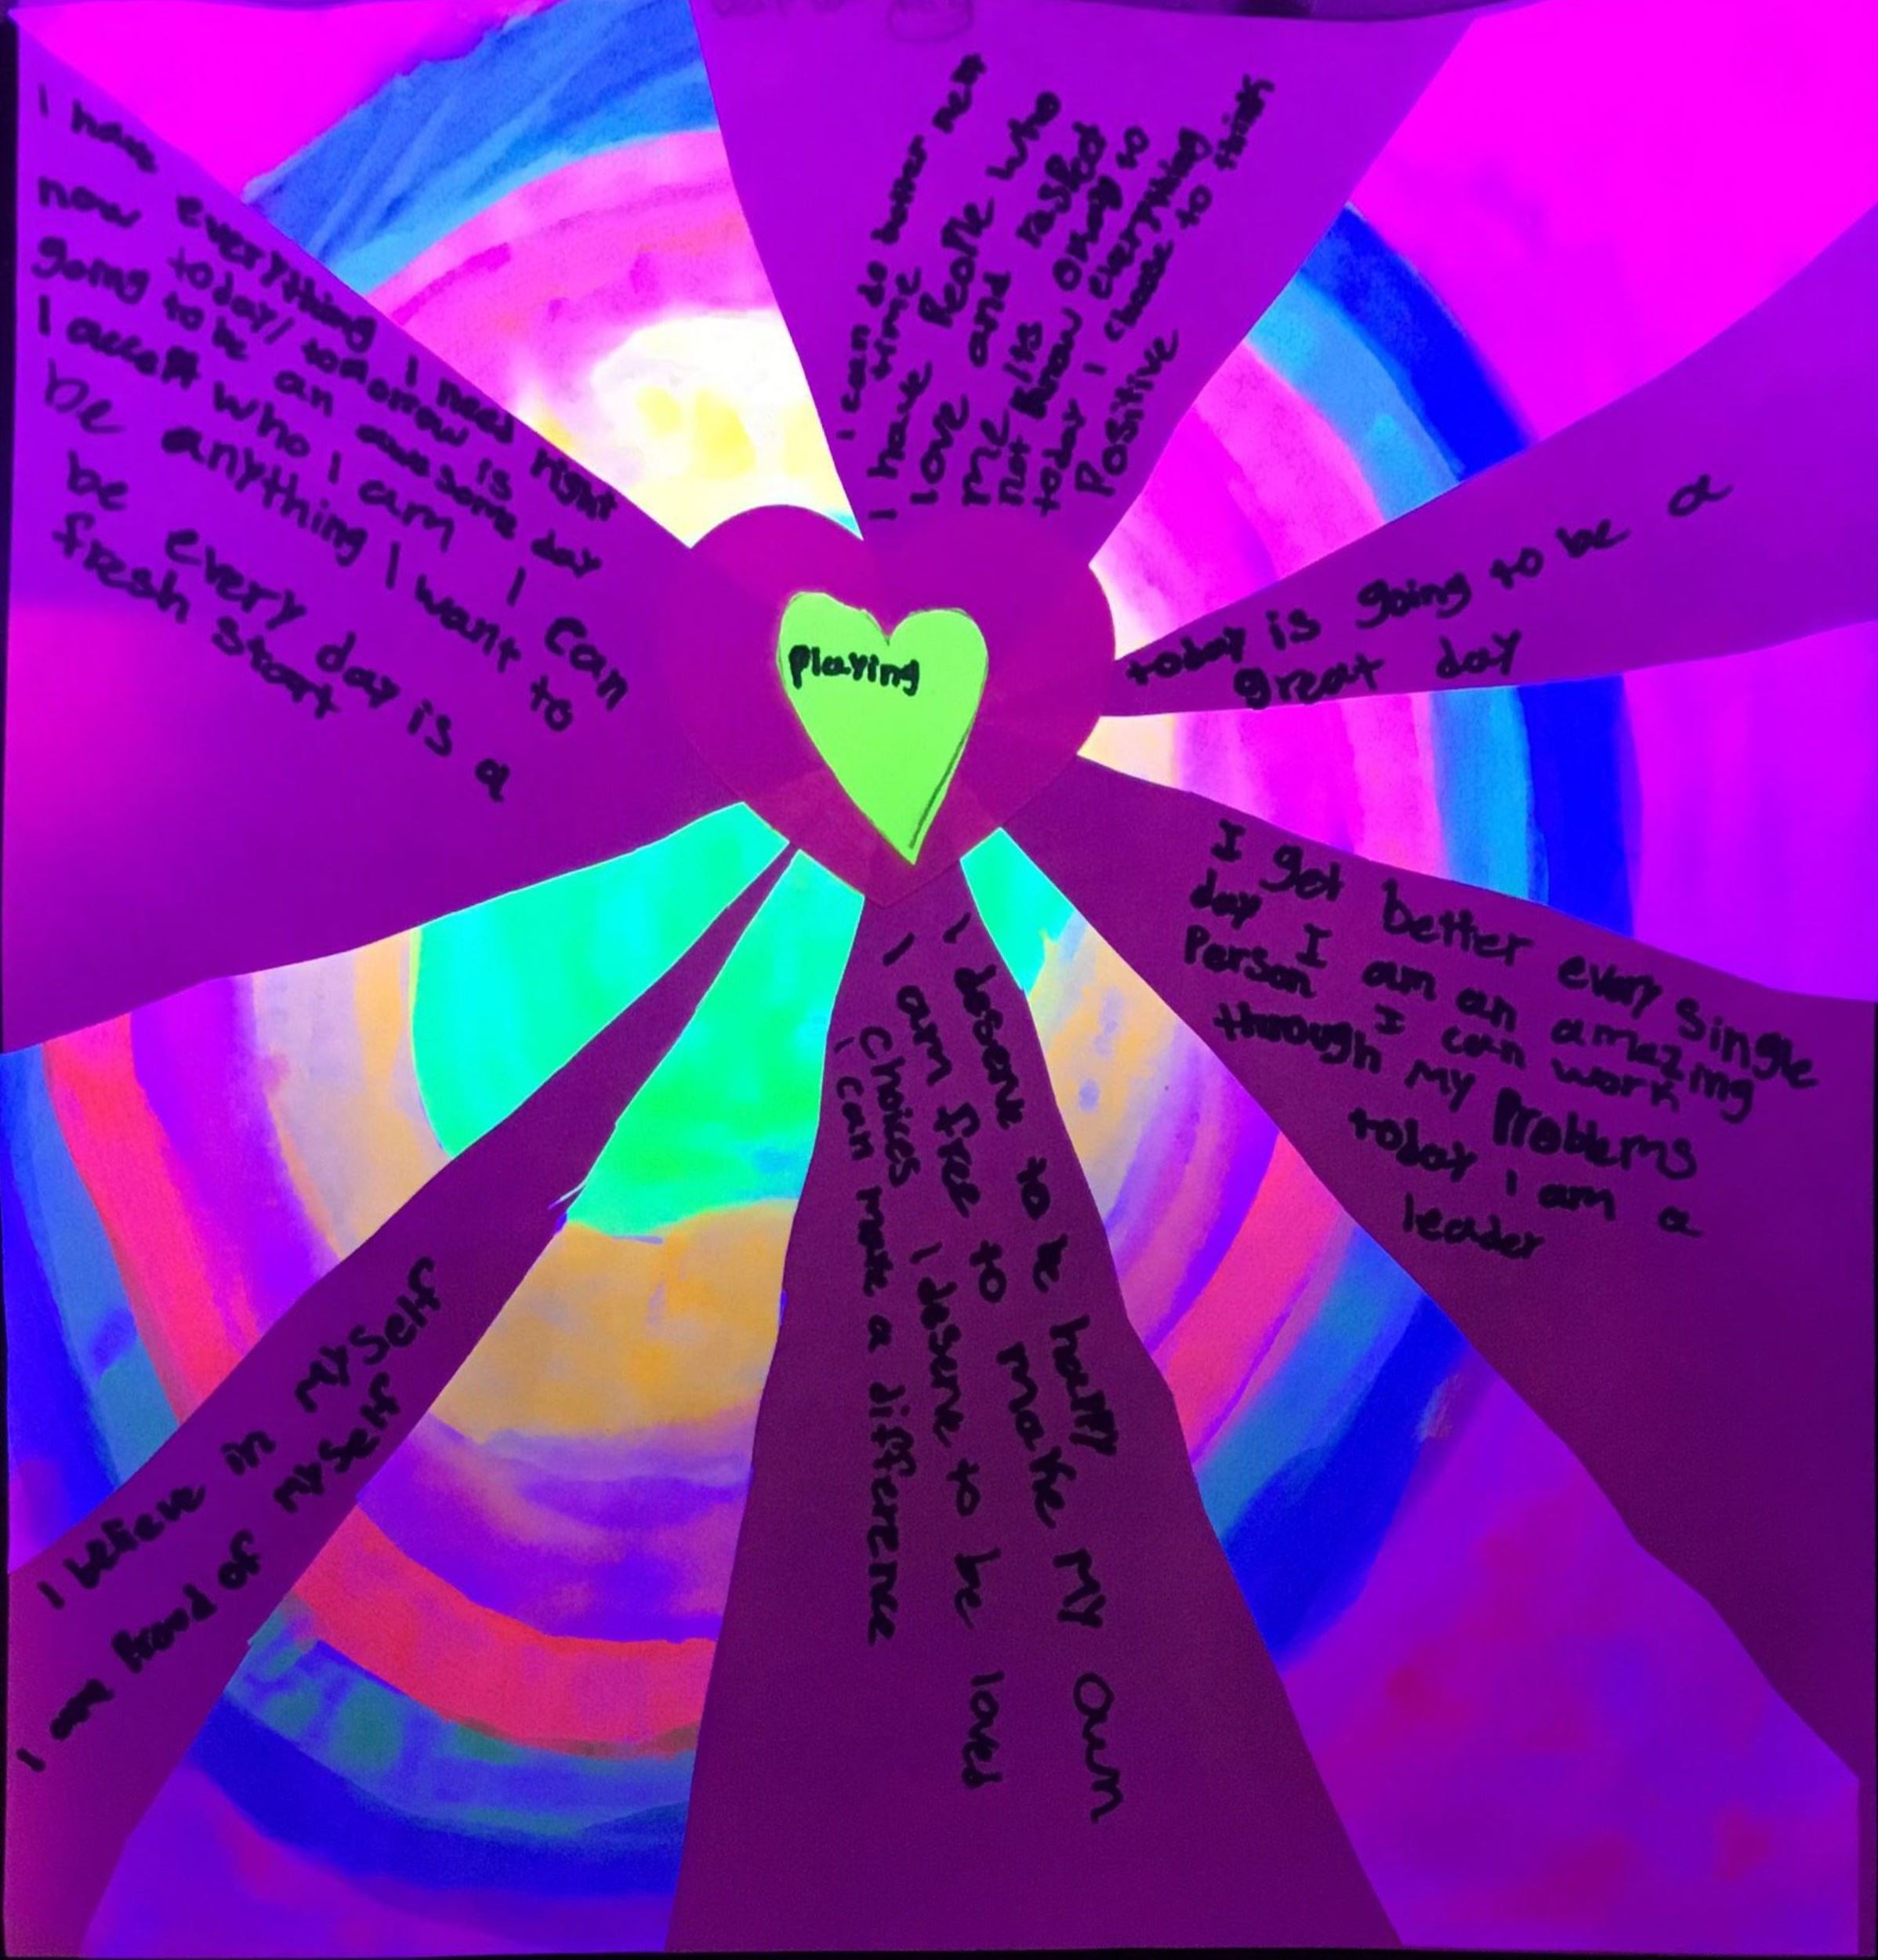 I have everything I need right
now today/tomorrow is
going to be an awesome day
I accept who I am I can
be anything I want to
be every day is a
fresh start
I can do better next
time
I have People who
love and respect
me Its Okay to
not know everything
today I choose to think
Positive
today is going to be a
great day
Playing
I get better every single
day I am an amazing
Person I can work
through My Problems
today I am a
leader
I deserve to be happy
I am free to make My Own
Choices I deserve to be loved
I can make a difference
I believe in MySelf
I am Proud of MySelf